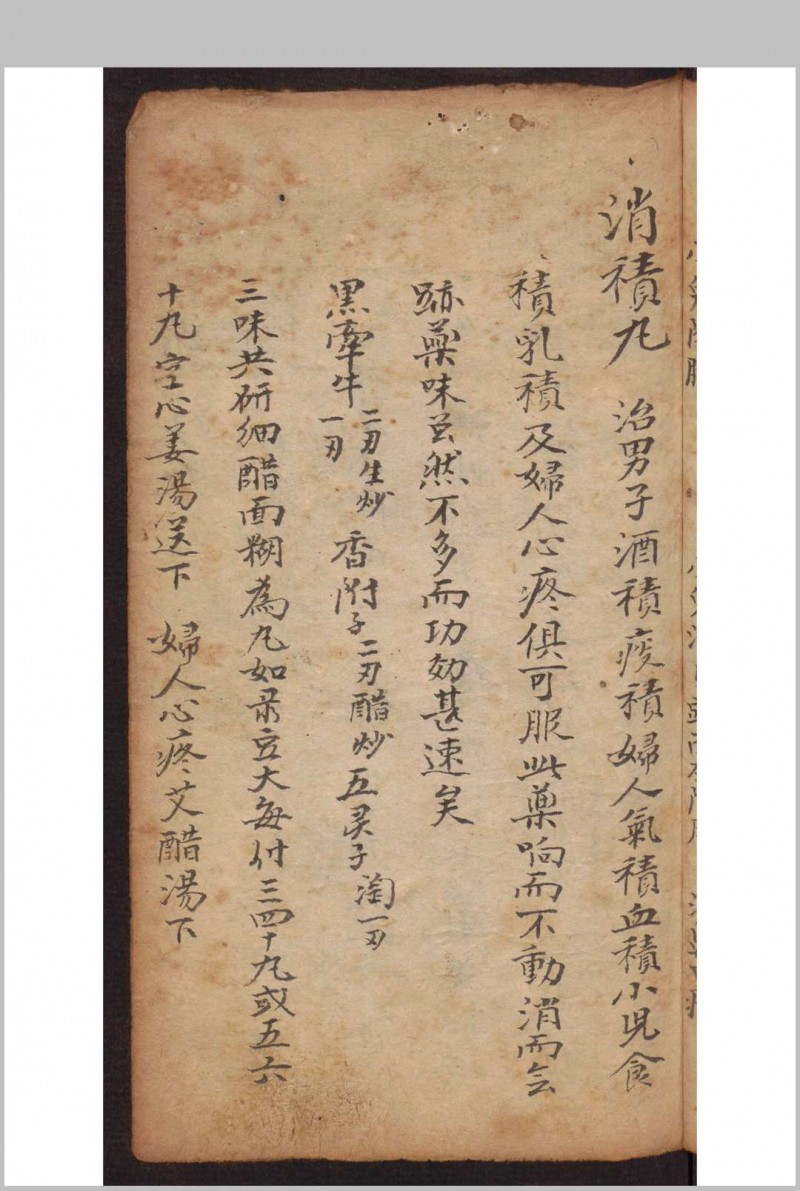 消積丸 治男子酒積痰積婦人氣積血積小児食
積乳積及婦人心疼俱可服此藥响而不動消而無
跡藥味虽然不多而功効甚速矣
黒牽牛 二刃生炒一刃 香附子二刃醋炒 五灵子淘一刃
三味共研細醋面糊為丸如彔豆大每付三四十丸或五六
十丸空心姜湯送下 婦人心疼艾醋湯下